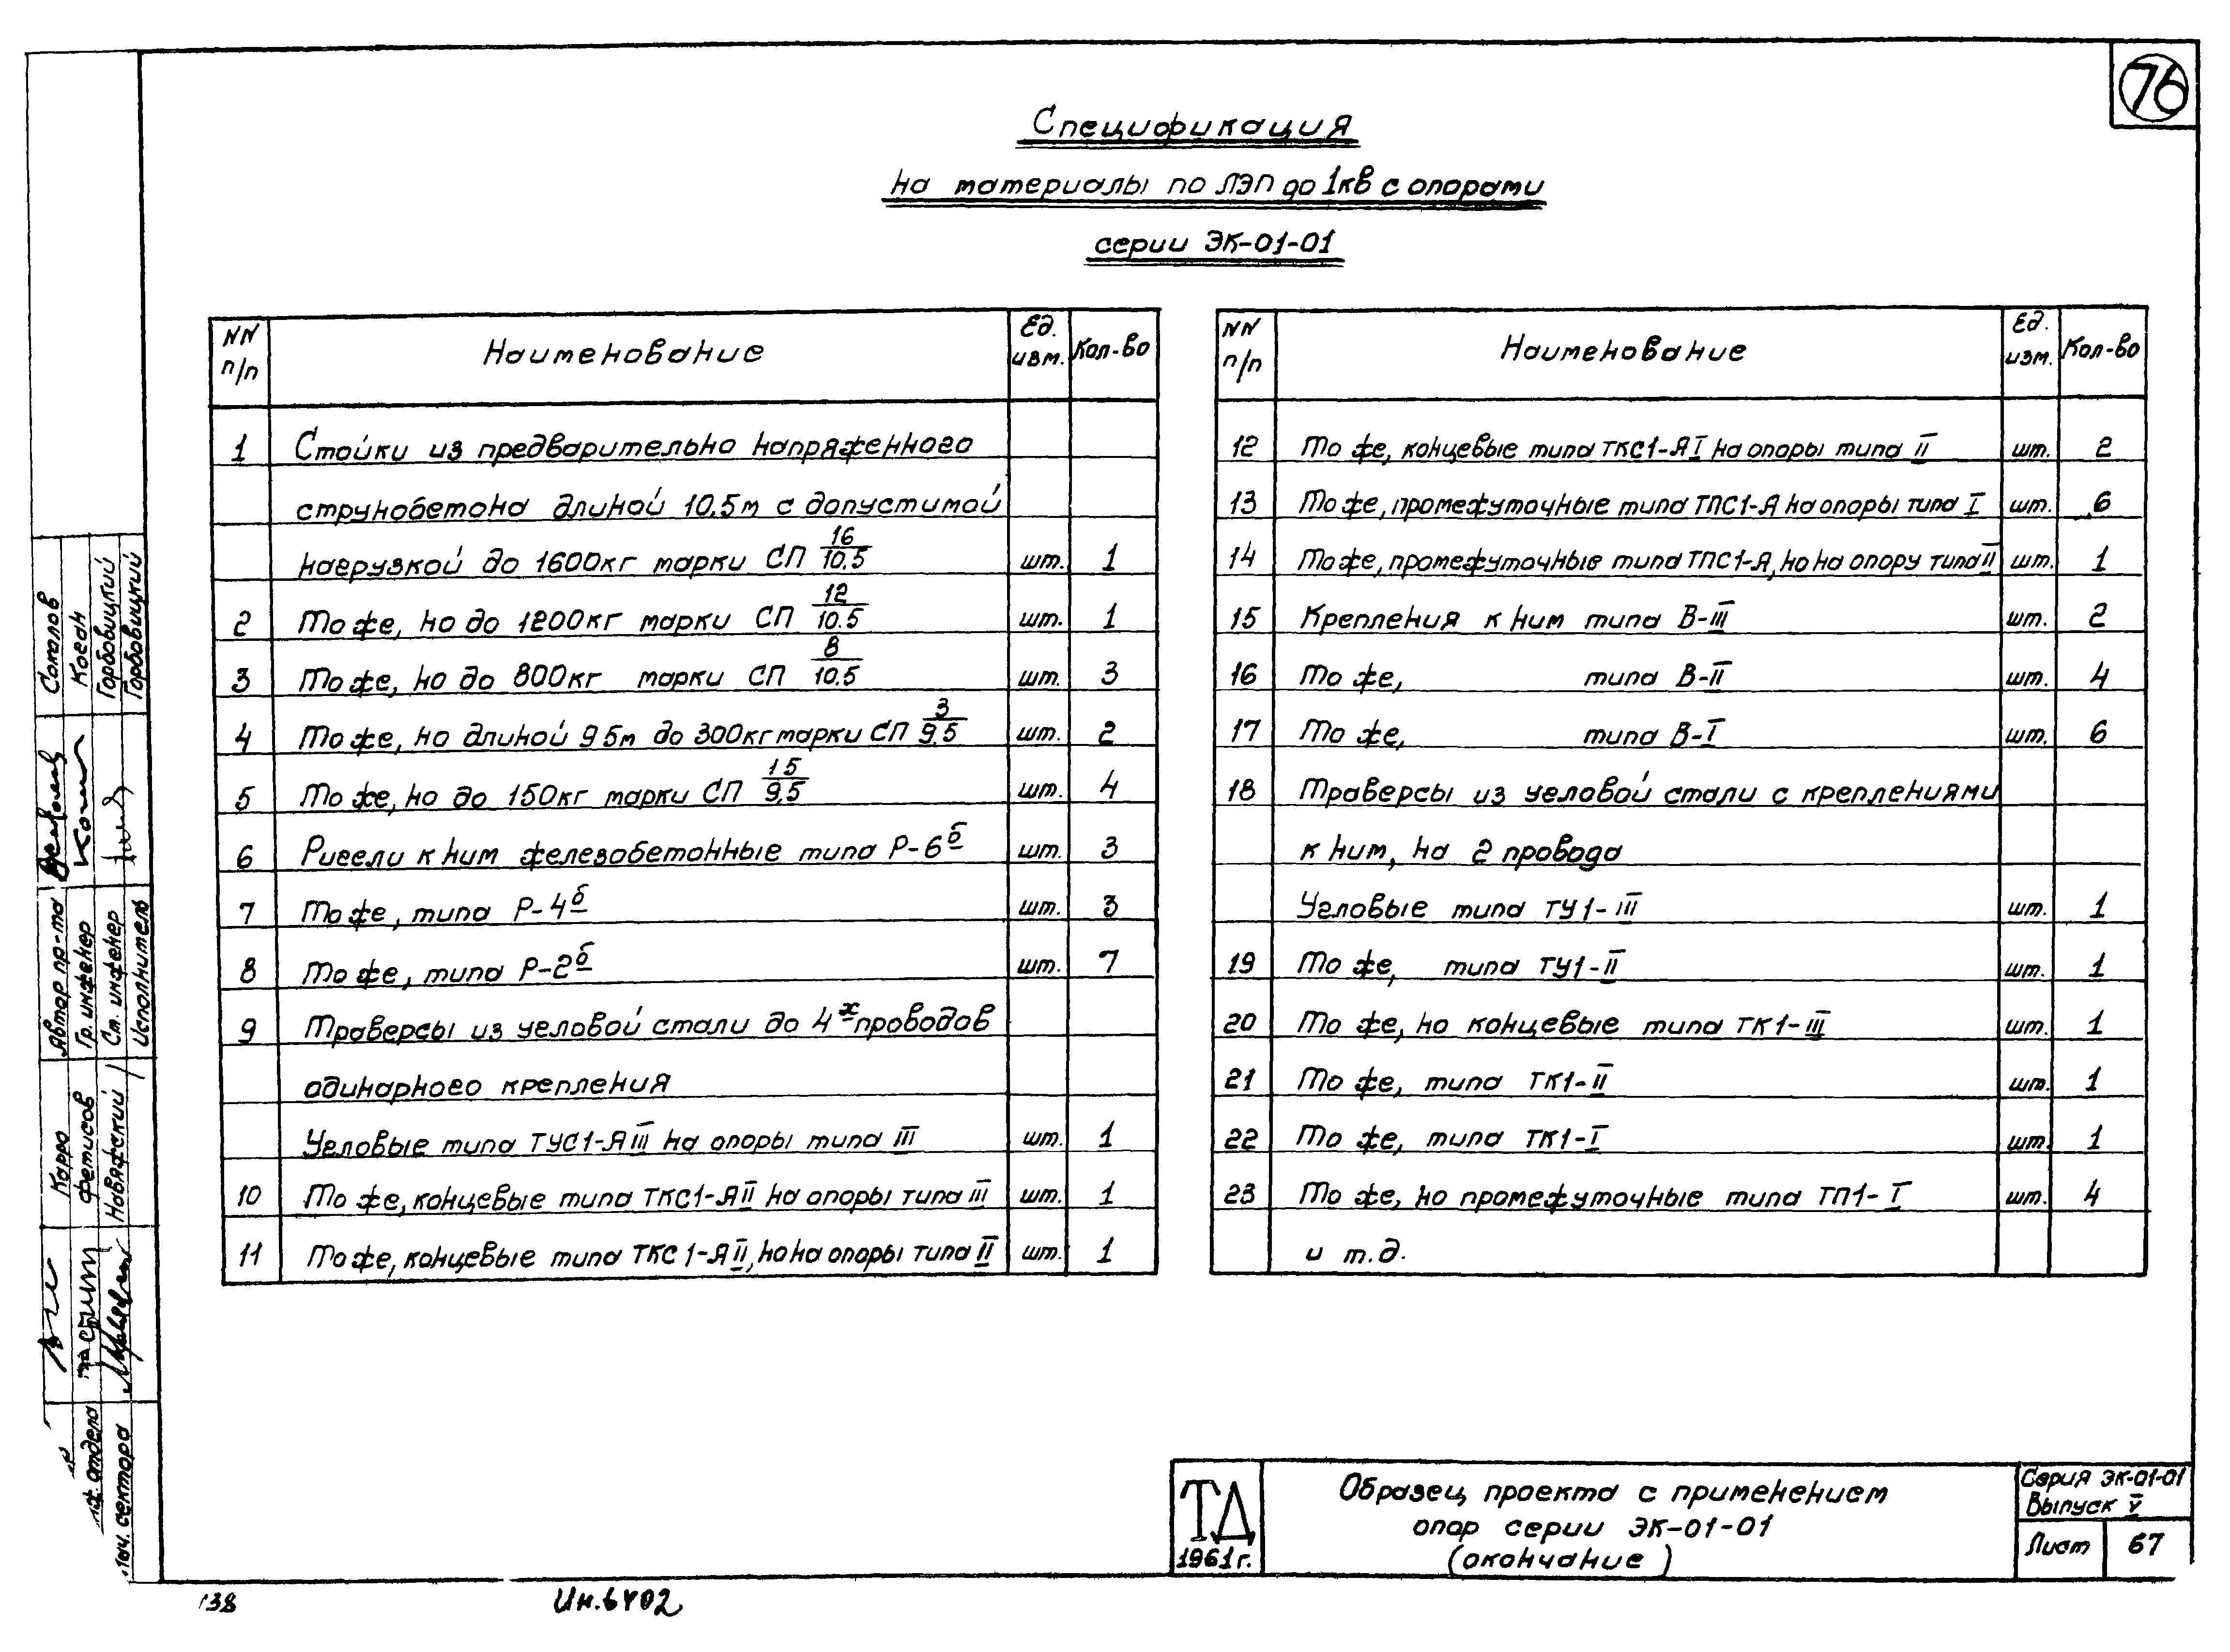 76
Спецификация
на материалы по ЛЭП до 1кв с опорами
серии ЭК-01-01
NN п/п Наименование Ед. изм. Кол-во
1 Стойки из предварительно напряженного
струнобетона длиной 10.5м с допустимой
нагрузкой до 1600кг марки СП 16/10.5 шт. 1
2 То же, но до 1200кг марки СП 12/10.5 шт. 1
3 То же, но до 800кг марки СП 8/10.5 шт. 3
4 То же, но длиной 9 5м до 300кг марки СП 3/9.5 шт. 2
5 То же, но до 150кг марки СП 1 5/9.5 шт. 4
6 Ригели к ним железобетонные типа Р-6б шт. 3
7 То же, типа Р-4б шт. 3
8 То же, типа Р-2б шт. 7
9 Траверсы из угловой стали до 4х проводов
одинарного крепления
Угловые типа ТУС1-ЯIII на опоры типа III шт. 1
10 То же, концевые типа ТКС1-ЯII на опоры типа III шт. 1
11 То же, концевые типа ТКС1-ЯII, но на опоры типа II шт. 1
NN п/п Наименование Ед. изм. Кол-во
12 То же, концевые типа ТКС1-ЯI на опоры типа II шт. 2
13 То же, промежуточные типа ТПС1-Я на опоры типа I шт. 6
14 То же, промежуточные типа ТПС1-Я, но на опору типа II шт. 1
15 Крепления к ним типа В-III шт. 2
16 То же, типа В-II шт. 4
17 То же, типа В-I шт. 6
18 Траверсы из угловой стали с креплениями
к ним, на 2 провода
Угловые типа ТУ1-III шт. 1
19 То же, типа ТУ1-II шт. 1
20 То же, но концевые типа ТК1-III шт. 1
21 То же, типа ТК1-II шт. 1
22 То же, типа ТК1-I шт. 1
23 То же, но промежуточные типа ТП1-I шт. 4
и т.д.
Соколов
Коган
Горбовицкий
Горбовицкий
Автор пр-та
Гр. инженер
Ст. инженер
Исполнитель
Карро
Фетисов
Навяжский
отдела
Нач. сектора
ТД
1961г.
Образец проекта с применением
опор серии ЭК-01-01
(окончание)
Серия ЭК-01-01
Выпуск V
Лист 67
138
Ин.6402